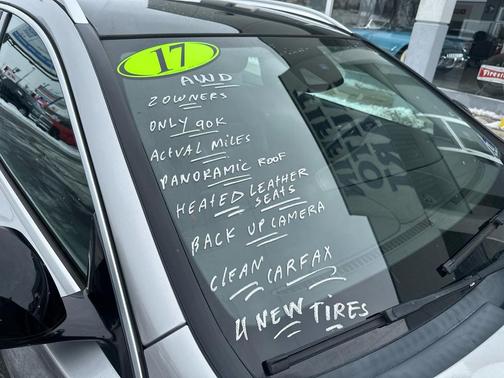 17
AWD
2 OWNERS
ONLY 90K
ACTUAL MILES
PANORAMIC ROOF
HEATED LEATHER
SEATS
BACK UP CAMERA
CLEAN CARFAX
4 NEW TIRES
Firestone